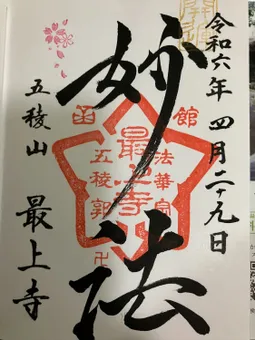 令和六年 四月二十九日
妙法
函館
五稜郭
最上寺
法華宗
卍
五稜山 最上寺